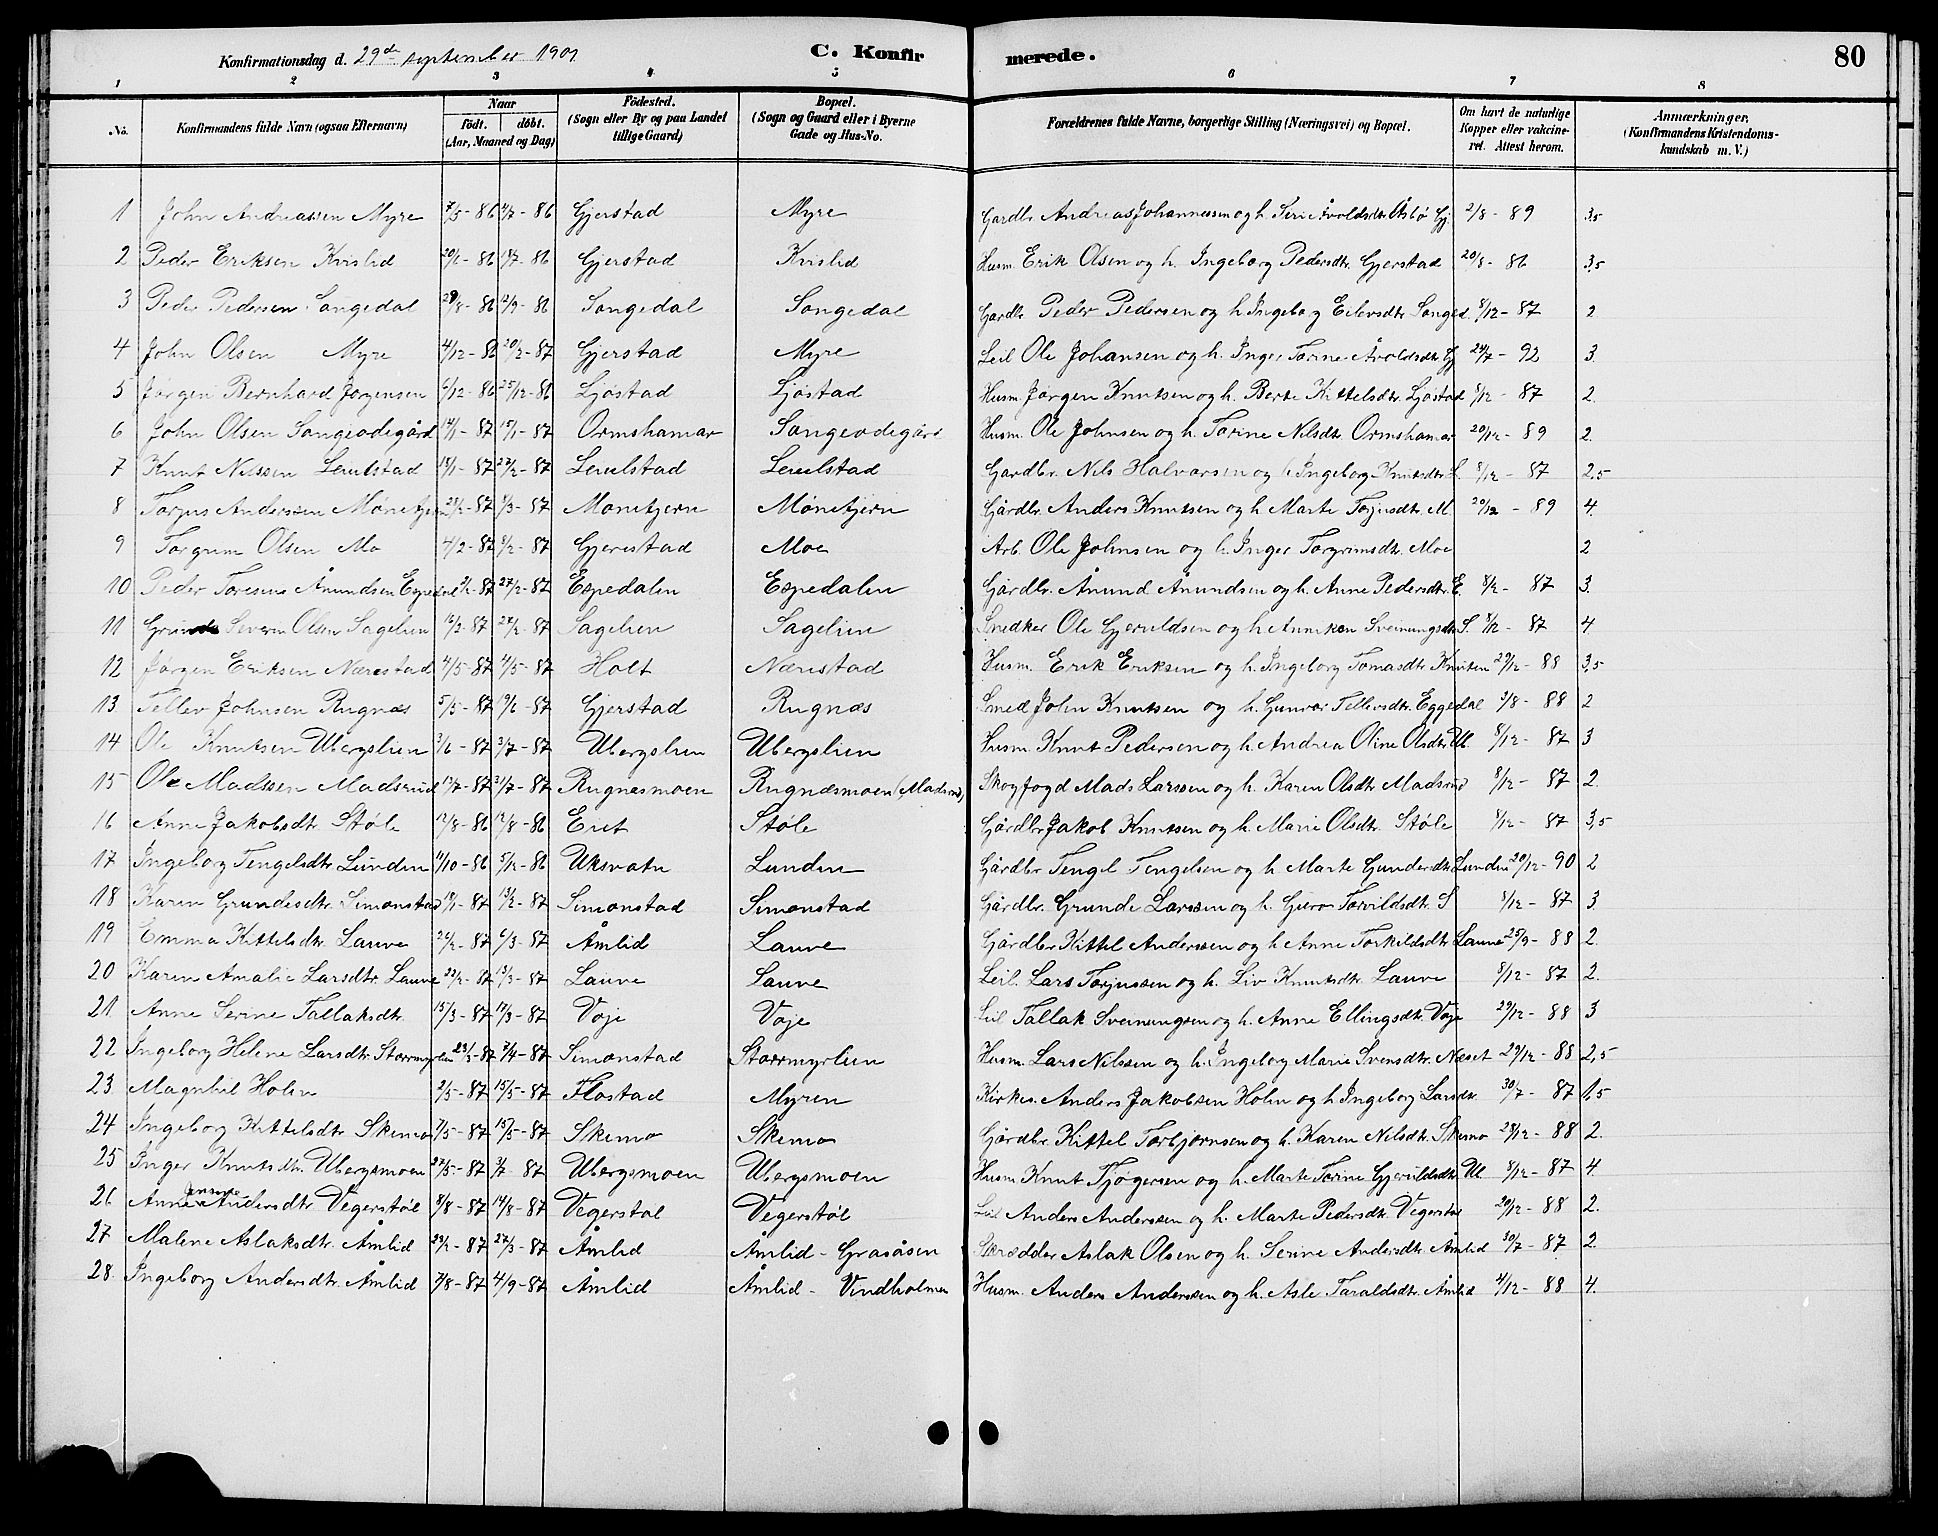 Konfirmationsdag d. 29de september 1901 C. Konfirmerede. 80
1 2 3 4 5 6 7 8
No. Konfirmandens fulde Navn (ogsaa Efternavn) Naar født. døbt. (Aar, Maaned og Dag) Fødested. (Sogn eller By og paa Landet tillige Gaard) Bopæl. (Sogn og Gaard eller i Byerne Gade og Hus-No. Forældrenes fulde Navne, borgerlige Stilling (Næringsvei) og Bopæl. Om havt de naturlige Kopper eller vakcineret. Attest herom. Anmærkninger, (Konfirmandens Kristendomskundskab m. V.)
1 John Andreassen Myre 7/5-86 4/7-86 Gjerstad Myre Gardbr. Andreas Johannessen og h. Serie Åvoldsdtr. Åsbø Gj. 2/8-89 3,5
2 Peder Eriksen Kvislid 20/6-86 Gjerstad Kvislid Husm. Erik Olsen og h. Ingeborg Pedersdtr. Gjerstad 20/8-86 3,5
3 Peder Pedersen Songedal 29/8-86 12/9-86 Songedal Songedal Gardbr Peder Pedersen og h. Ingeborg Eilevsdtr. Songed. 8/12-87 2
4 John Olsen Myre 4/12-86 20/2-87 Gjerstad Myre Leil Ole Johansen og h. Inger Torine Åvoldsdtr. Gj 24/7-92 3.
5 Jørgen Bernhard Jørgensen 6/12-86 25/12-86 Ljøstad Ljøstad Husm Jørgen Knutsen og h. Berte Kittelsdtr. Ljøstad 8/12-87 2.
6 John Olsen Songeødegård 14/1-87 15/1-87 Ormshamar Songeødegård Husm. Ole Johnsen og h. Torine Nilsdtr. Ormshamar 20/12-89 2.
7 Knut Nilssen Leiulstad 13/1-87 27/2-87 Leiulstad Leiulstad Gardbr. Nils Halvorsen og h Ingeborg Knutsdtr. L. 8/12-87 2,5
8 Torjus Anderssen Mønetjern 23/2-87 /3-87 Mønetjern Mønetjern Gårdbr. Anders Knutsen og h. Marte Torjusdtr. M 20/12-89 4.
9 Torgrim Olsen Mo 4/2-87 /2-87 Gjerestad Moe Arb. Ole Johnsen og h. Inger Torgrimsdtr. Moe 2
10 Peder Toresius Ånundsen Espedal 2/2-87 27/2-87 Espedalen Espedalen Gårdbr. Ånund Ånundsen og h. Anne Pedersdtr. E. 8/12-87 3.
11 Grunde Severin Olsen Sagelien 16/2-87 27/2-87 Sagelien Sagelien Snedker Ole Gjeruldsen og h Anniken Sveinungsdtr. S. 8/12-87 4
12 Jørgen Eriksen Nærestad 4/5-87 4/5-87 Holt Nærestad Husm. Erik Eriksen og h. Ingeborg Tomasdtr. Knuten 29/12-88 3,5
13 Tellev Johnsen Rugnæs 5/5-87 19/6-87 Gjerstad Rugnæs Smed John Knutsen og h. Gunvor Tellevsdtr. Eggedal 3/8-88 2
14 Ole Knutsen Ubergslien 3/6-87 3/7-87 Ubergslien Ubergslien Husm. Knut Pedersen og h. Andrea Oline Olsdtr. Ub. 8/12-87 3
15 Ole Madssen Madsrud 13/7-87 31/7-87 Rugnesmoen Rugnæsmoen (Madsrud) Skogfogd Mads Larssen og h. Karen Olsdtr. Madsrud 8/12-87 2.
16 Anne Jakobsdtr. Støle 12/8-86 12/8-86 Eret Støle Gårdbr Jakob Knutsen og h. Marie Olsdtr. Støle 8/12-87 3,5
17 Ingeborg Tengelsdtr Lunden 11/10-86 5/12-86 Uksvatn Lunden Gårdbr Tengel Tengelsen og h Marte Gundersdtr. Lunden 20/12-90 2
18 Karen Grundesdtr. Simonstad 19/1-87 13/2-87 Simonstad Simonstad Gårdbr. Grunde Larssen og h. Guro Torvildsdtr. S 8/12-87 3.
19 Emma Kittelsdtr. Lauve 26/2-87 6/3-87 Åmlid Lauve Gårdbr Kittel Anderssen og h. Anne Torkildsdtr. Lauve 25/9-88 2.
20 Karen Amalie Larsdtr. Lauve 22/2-87 13/3-87 Lauve Lauve Leil. Lars Torjussen og h. Liv Knutsdtr. Lauve 8/12-87 2.
21. Anne Serine Tallaksdtr. 15/3-87 17/3-87 Voje Voje Leil Tallak Sveinungsen og h. Anne Ellingsdtr. Voje 29/12-88 3
22 Ingeborg Helene Larsdtr. Stormyrlien 23/3-87 /4-87 Simonstad Stormyrlien Husm. Lars Nilssen og h. Ingeborg Marie Svensdtr. Næset 29/12-88 2,5
23. Magnhil Holm 2/5-87 15/5-87 Flostad Myren Kirkes. Anders Jakobsen Holm og h Ingeborg Larsdtr. 30/7-87 1,5
24 Ingeborg Kittelsdtr Skemo 7/5-87 15/5-87 Skemo Skemo Gårdbr. Kittel Torbjørnsen og h. Karen Nilsdtr. Skemo 29/12-88 2.
25 Inger Knutsdtr. Ubergsmoen 27/5-87 3/7-87 Ubergsmoen Ubergsmoen Husm. Knut Tjøgersen og h. Marte Torine Gjeruldsdtr. Ub 8/12-87 4.
26 Anne Jensine Andersdtr Vegerstøl 8/8-87 14/8-87 Vegerstøl Vegerstøl Leil Anders Anderssen og h. Marte Pedersdtr. Vegerstøl 29/12-88 2.
27 Malene Aslaksdtr. Åmlid 23/2-87 27/3-87 Åmlid Åmlid - Gråsåsen Skrædder Aslak Olsen og h. Serine Andersdtr. Åmlid 30/7-87 2
28. Ingeborg Andersdtr. Åmlid 7/8-87 4/9-87 Åmlid Åmlid - Vindholmen Husm. Anders Anderssen og h. Asle Taraldsdtr. Åmlid 4/12-88 4.